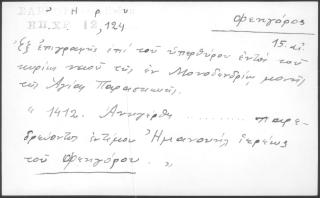 Φεηγόρος
ΗΠ.ΧΡ 12, 124
15. αἰ.
Ἐξ ἐπιγραφῆς ἐπὶ τοῦ ὑπερθύρου ἐντὸς τοῦ
κυρίως ναοῦ τῆς ἐν Μονοδενδρίῳ μονῆς
τῆς Ἁγίας Παρασκευῆς.
" 1412. Ἀνηγέρθη .......... παρε-
δρεύοντος ἐντίμου Ἡμανουὴλ ἱερέως
τοῦ Φεηγόρου. "